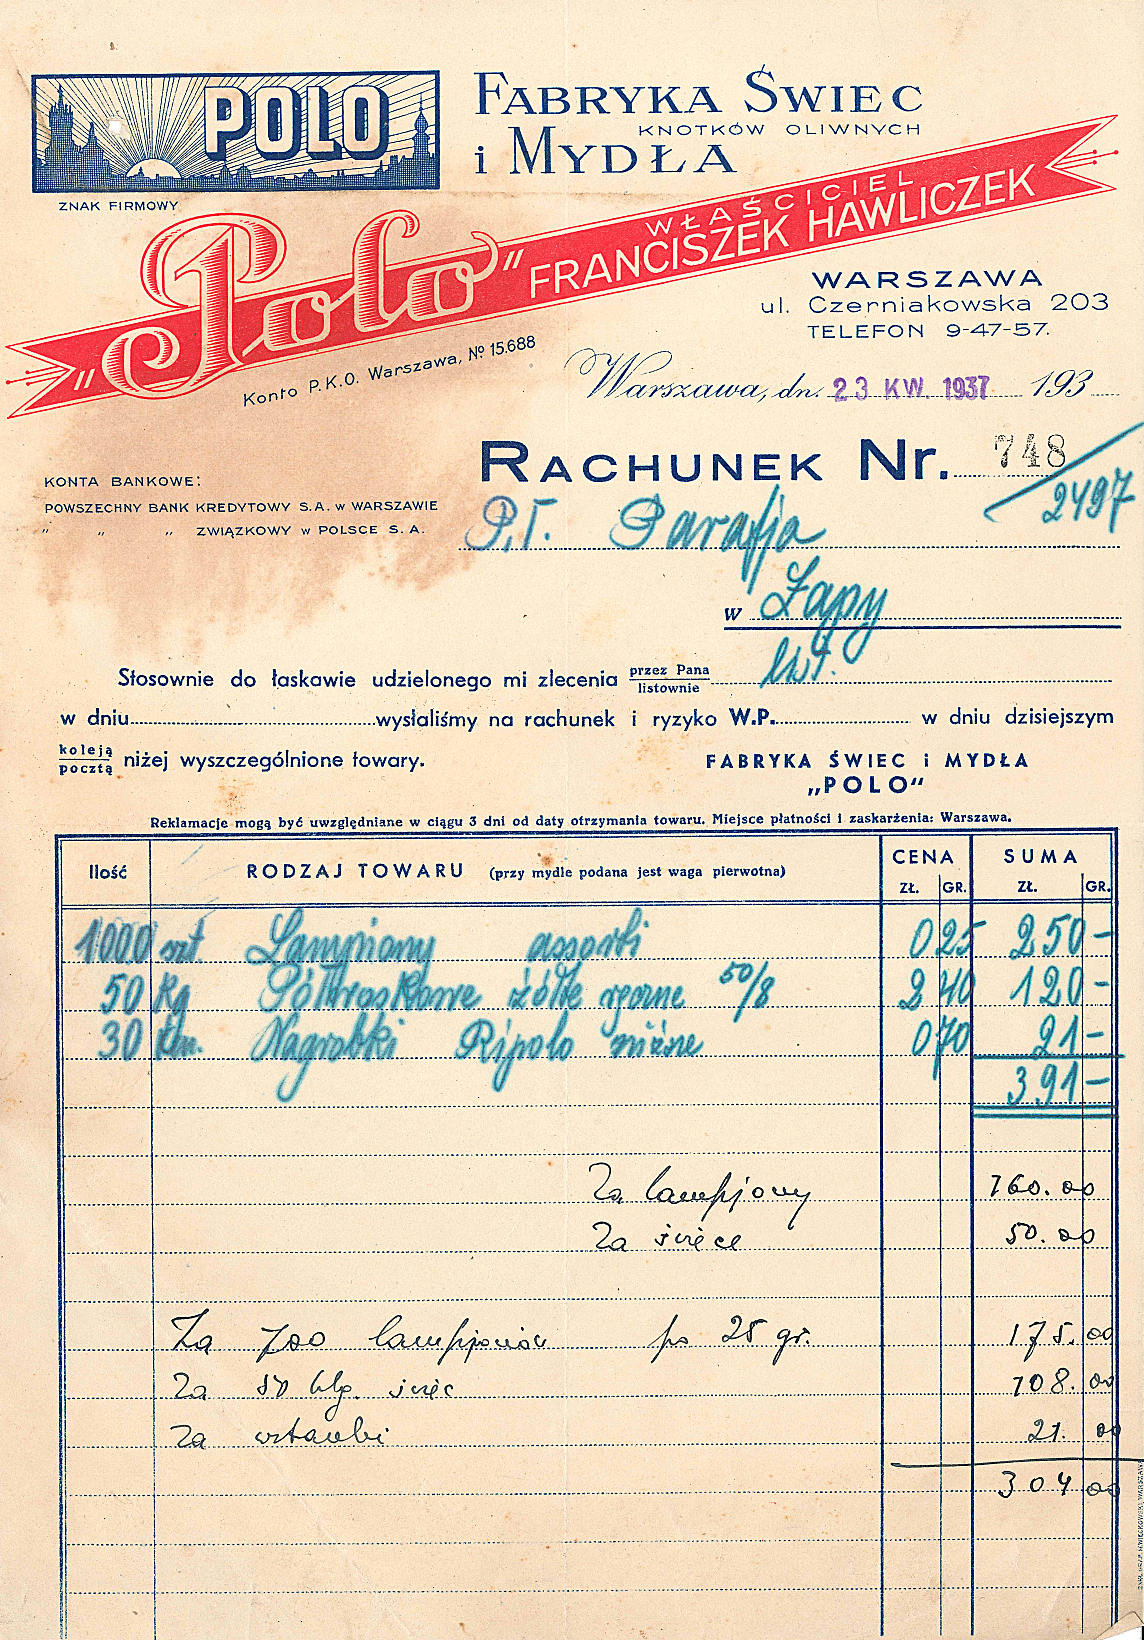 POLO
ZNAK FIRMOWY
FABRYKA ŚWIEC
KNOTKÓW OLIWNYCH
i MYDŁA
„Polo”
WŁAŚCICIEL
FRANCISZEK HAWLICZEK
WARSZAWA
ul. Czerniakowska 203
TELEFON 9-47-57.
Konto P.K.O. Warszawa, Nº 15.688
Warszawa, dn. 23 KW. 1937 193
RACHUNEK Nr. 748
2497
KONTA BANKOWE:
POWSZECHNY BANK KREDYTOWY S.A. w WARSZAWIE
„ „ „ ZWIĄZKOWY w POLSCE S. A.
P.T. Parafja
w Łapy
Stosownie do łaskawie udzielonego mi zlecenia przez Pana
listownie
w dniu wysłaliśmy na rachunek i ryzyko W.P. w dniu dzisiejszym
koleją
pocztą niżej wyszczególnione towary.
FABRYKA ŚWIEC i MYDŁA
„POLO”
Reklamacje mogą być uwzględniane w ciągu 3 dni od daty otrzymania towaru. Miejsce płatności i zaskarżenia: Warszawa.
Ilość RODZAJ TOWARU (przy mydle podana jest waga pierwotna) CENA SUMA
ZŁ. GR. ZŁ. GR.
1000 szt. Lampiony assorti 0 25 250 -
50 kg Półwoskowe żółte ręczne 50/8 2 40 120 -
30 Nagrobki Ripolo różne 0 70 21 -
391 -
Za lampjony 160.00
Za świece 50.00
Za 700 lampjonów po 25 gr. 175.00
Za 50 klg. świec 108.00
Za wstawki 21.00
304 00